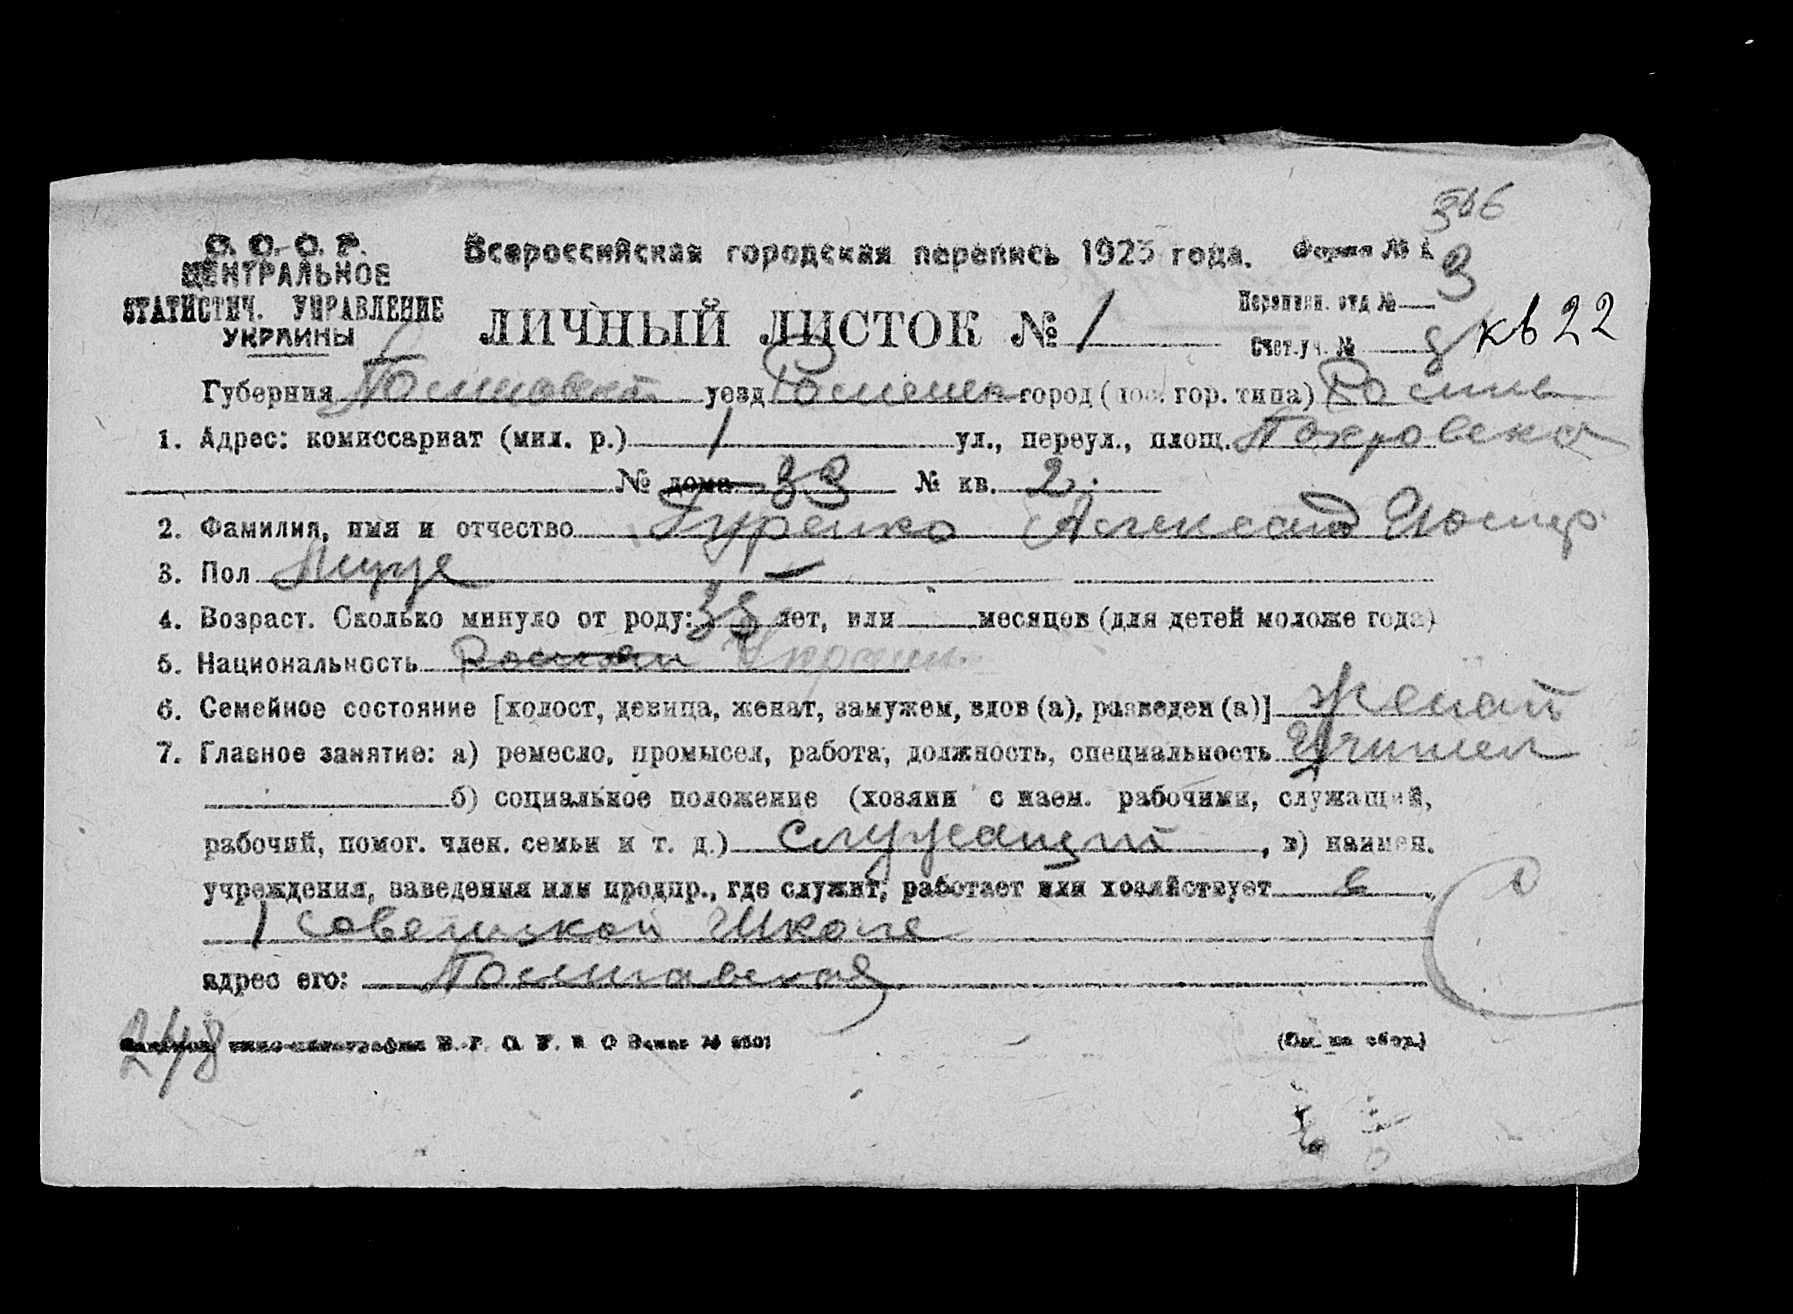 546
С. С. С. Р.
ЦЕНТРАЛЬНОЕ
СТАТИСТИЧ. УПРАВЛЕНИЕ
УКРАИНЫ
Всероссийская городская перепись 1923 года. Форма № А
3
ЛИЧНЫЙ ЛИСТОК № 1
Переписн. отд №
Счет. уч. № кв 22
Губерния Полтавской уезд Роменск город (пос. гор. типа) Ромны
1. Адрес: комиссариат (мил. р.) 1 ул., переул., площ. Покровская
№ дома 33 № кв. 2.
2. Фамилия, имя и отчество Гуренко Александ
3. Пол Мужс
4. Возраст. Сколько минуло от роду: 33 лет, или месяцев (для детей моложе года)
5. Национальность Украин.
6. Семейное состояние [холост, девица, женат, замужем, вдов (а), разведен (а)] женат
7. Главное занятие: а) ремесло, промысел, работа, должность, специальность Учител
б) социальное положение (хозяин с наем. рабочими, служащий,
рабочий, помог. член. семьи и т. д.) служащий, в) наимен.
учреждения, заведения или предпр., где служит, работает или хозяйствует в
1 советской школе
адрес его: Полтавская
248
(См. на обор.)